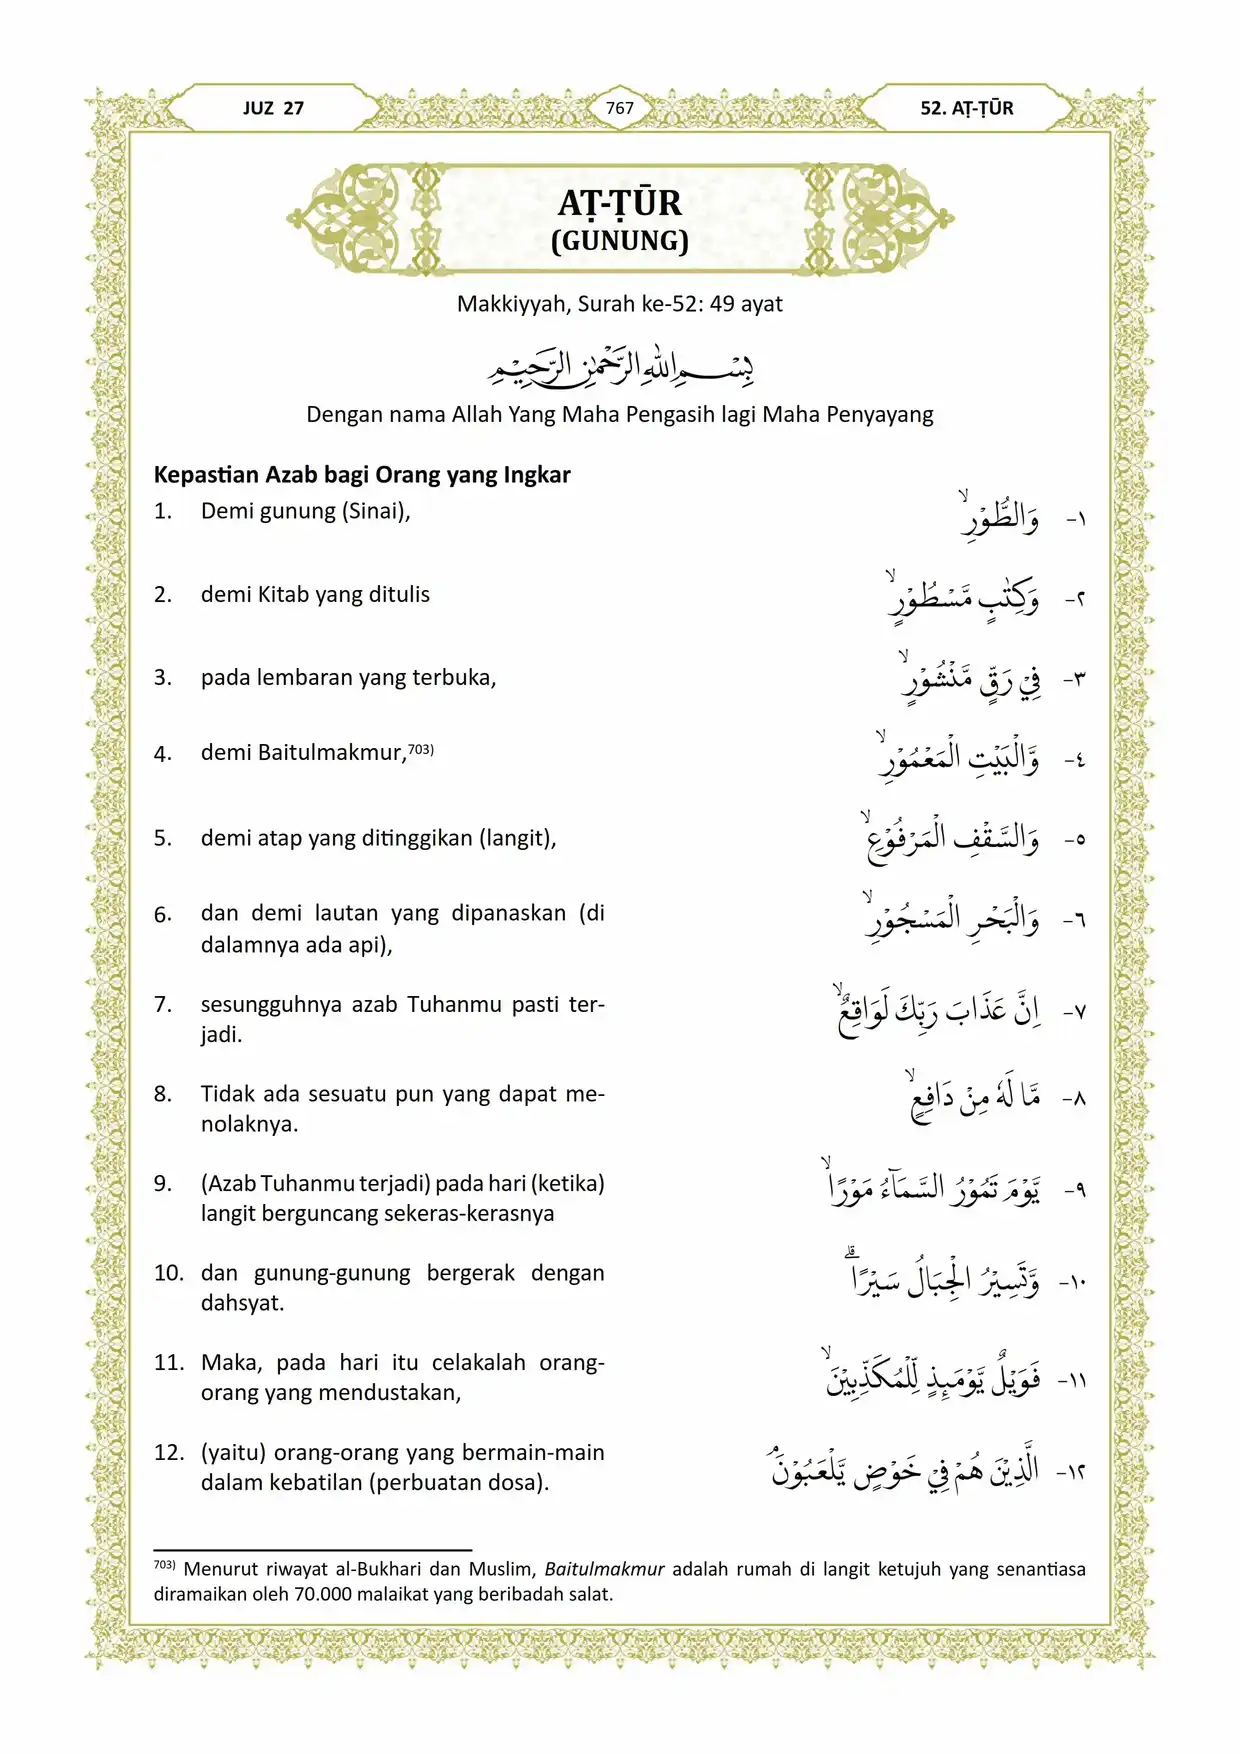 JUZ 27
767
52. AṬ-ṬŪR
AṬ-ṬŪR
(GUNUNG)
Makkiyyah, Surah ke-52: 49 ayat
بِسْمِ اللّٰهِ الرَّحْمٰنِ الرَّحِيْمِ
Dengan nama Allah Yang Maha Pengasih lagi Maha Penyayang
Kepastian Azab bagi Orang yang Ingkar
1. Demi gunung (Sinai),
١- وَالطُّوْرِۙ
2. demi Kitab yang ditulis
٢- وَكِتٰبٍ مَّسْطُوْرٍۙ
3. pada lembaran yang terbuka,
٣- فِيْ رَقٍّ مَّنْشُوْرٍۙ
4. demi Baitulmakmur,703)
٤- وَّالْبَيْتِ الْمَعْمُوْرِۙ
5. demi atap yang ditinggikan (langit),
٥- وَالسَّقْفِ الْمَرْفُوْعِۙ
6. dan demi lautan yang dipanaskan (di
dalamnya ada api),
٦- وَالْبَحْرِ الْمَسْجُوْرِۙ
7. sesungguhnya azab Tuhanmu pasti ter-
jadi.
٧- اِنَّ عَذَابَ رَبِّكَ لَوَاقِعٌۙ
8. Tidak ada sesuatu pun yang dapat me-
nolaknya.
٨- مَّا لَهٗ مِنْ دَافِعٍۙ
9. (Azab Tuhanmu terjadi) pada hari (ketika)
langit berguncang sekeras-kerasnya
٩- يَّوْمَ تَمُوْرُ السَّمَاۤءُ مَوْرًاۙ
10. dan gunung-gunung bergerak dengan
dahsyat.
١٠- وَّتَسِيْرُ الْجِبَالُ سَيْرًاۗ
11. Maka, pada hari itu celakalah orang-
orang yang mendustakan,
١١- فَوَيْلٌ يَّوْمَىِٕذٍ لِّلْمُكَذِّبِيْنَۙ
12. (yaitu) orang-orang yang bermain-main
dalam kebatilan (perbuatan dosa).
١٢- الَّذِيْنَ هُمْ فِيْ خَوْضٍ يَّلْعَبُوْنَۘ
703) Menurut riwayat al-Bukhari dan Muslim, Baitulmakmur adalah rumah di langit ketujuh yang senantiasa
diramaikan oleh 70.000 malaikat yang beribadah salat.